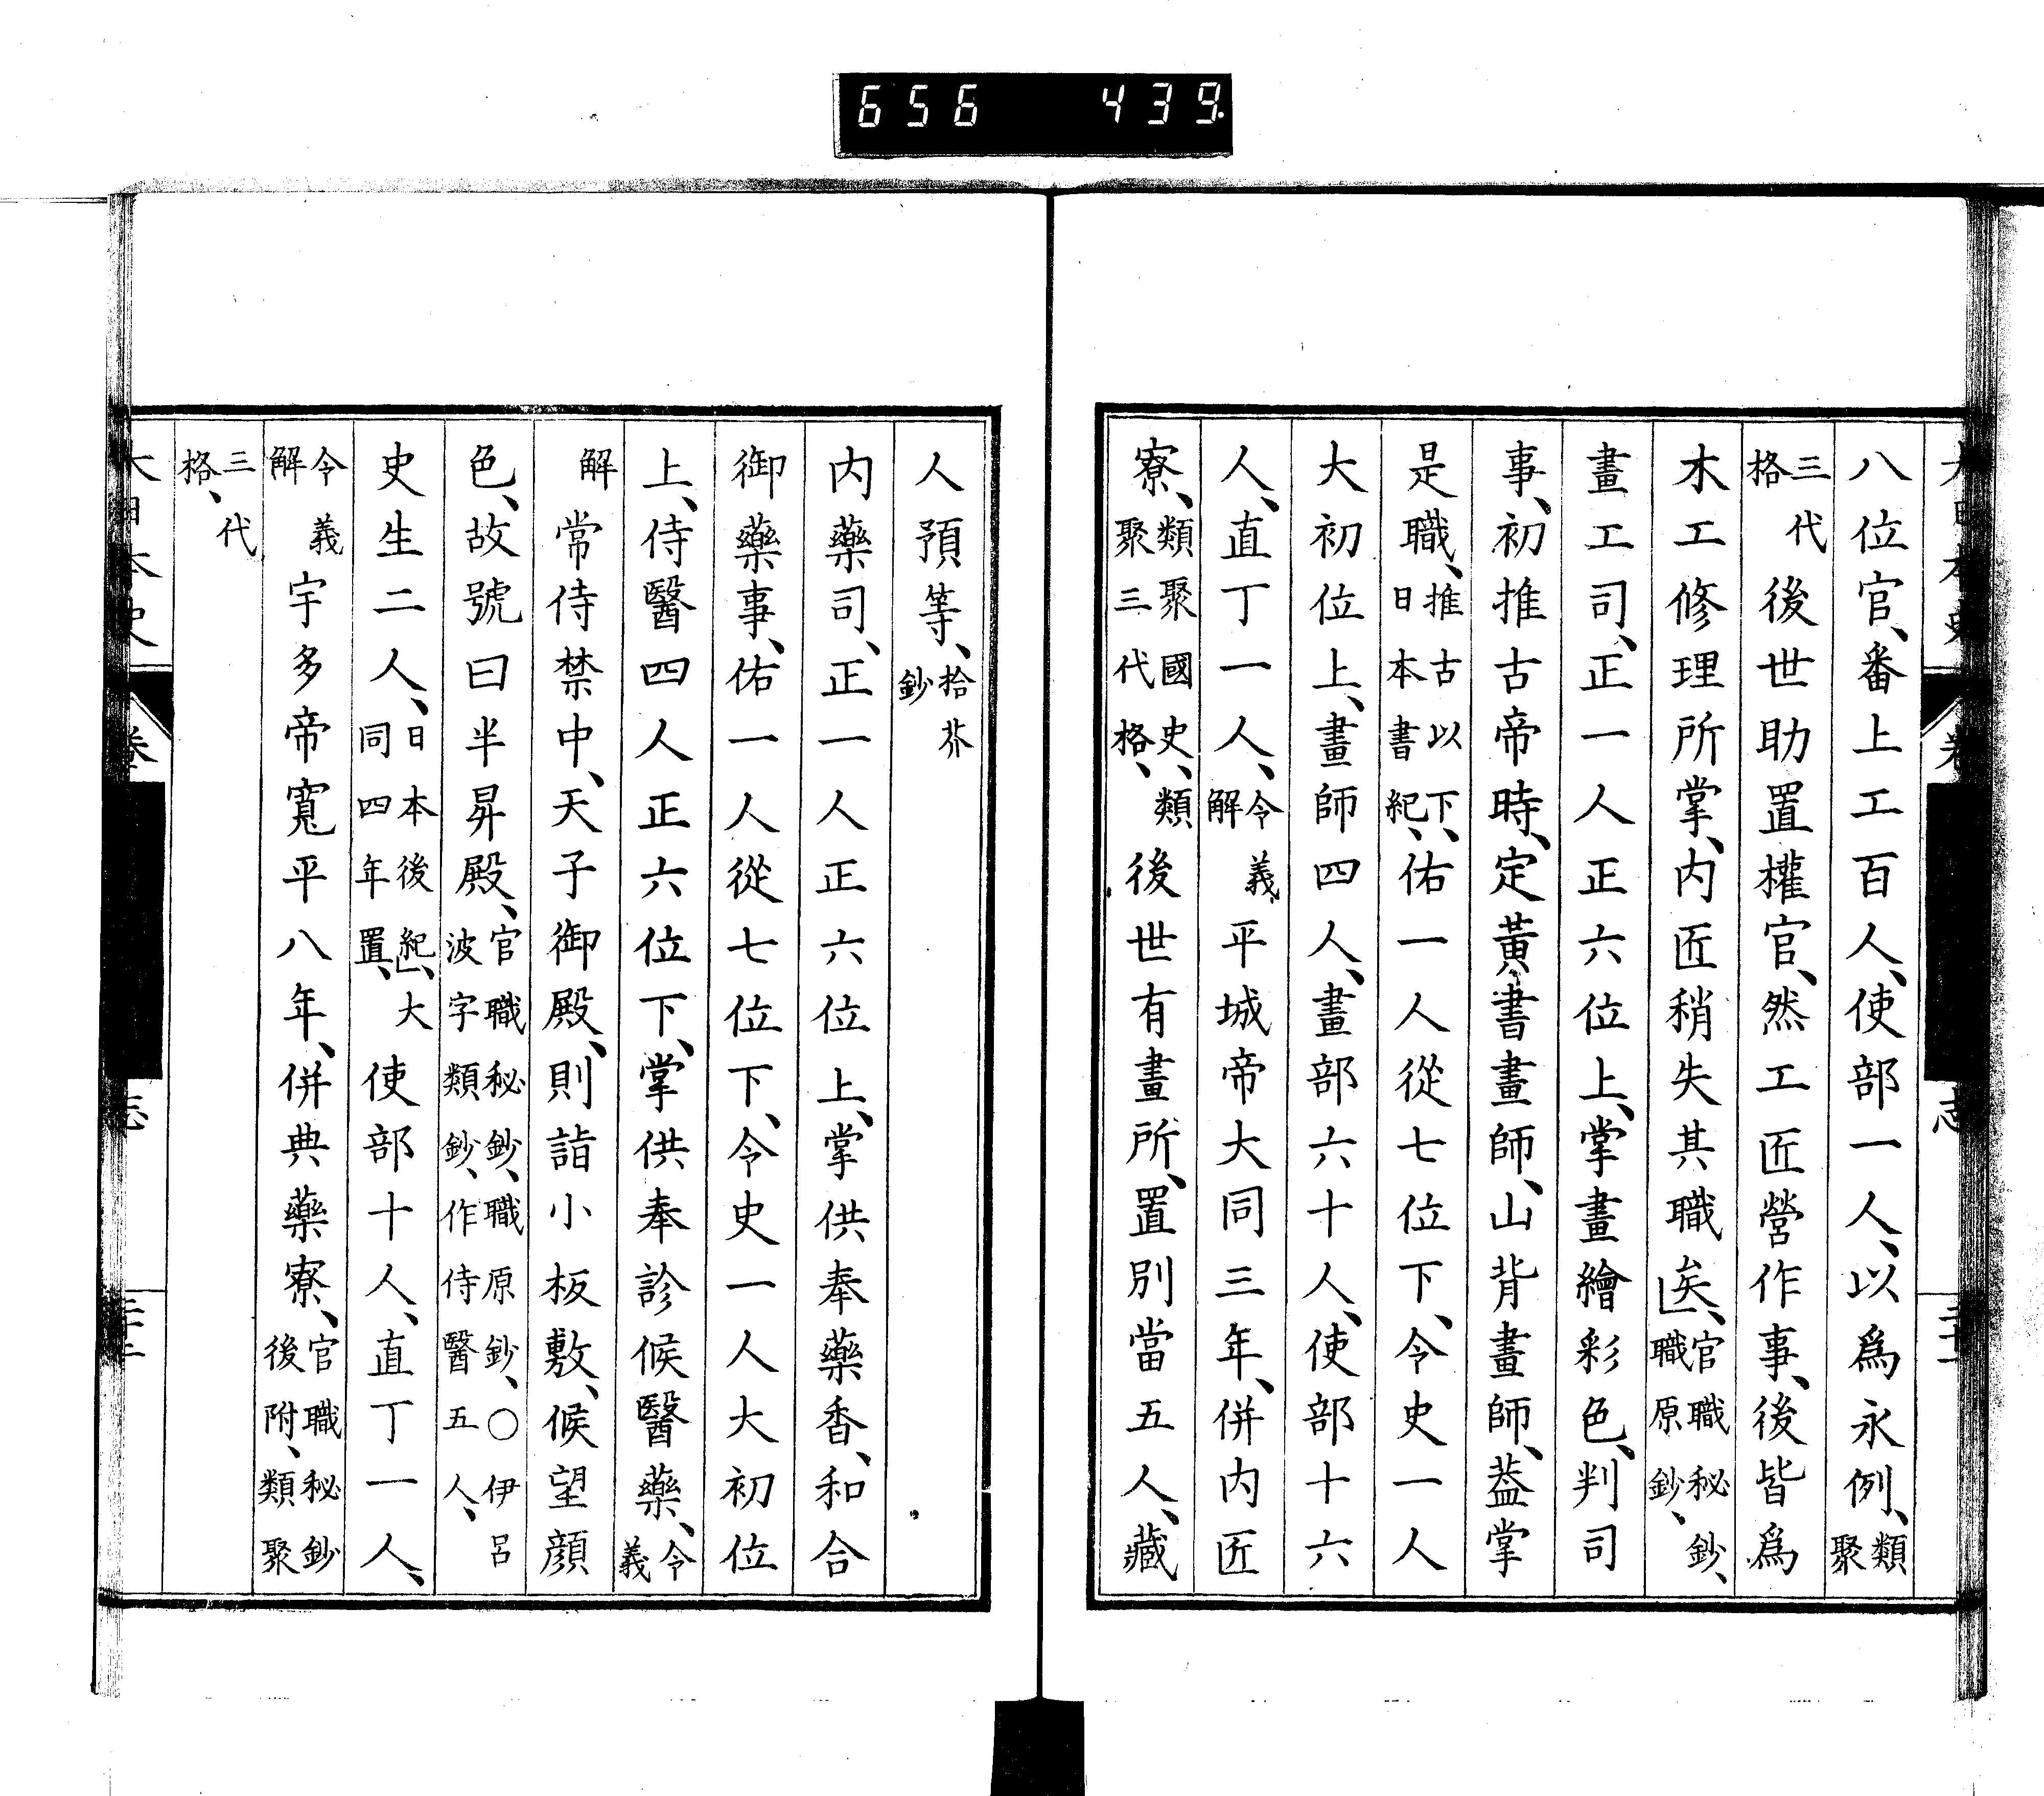 656 439
八位官、番上工百人、使部一人、以爲永例、類聚
三代格 後世助置權官、然工匠營作事、後皆爲
木工修理所掌、内匠稍失其職矣」、官職秘鈔、職原鈔、
畫工司、正一人正六位上、掌畫繪彩色、判司
事、初推古帝時、定黃書畫師、山背畫師、葢掌
是職、推古以下、日本書紀、佑一人從七位下、令史一人
大初位上、畫師四人、畫部六十人、使部十六
人、直丁一人、令義解 平城帝大同三年、併内匠
寮、類聚國史、類聚三代格、後世有畫所、置別當五人、藏
人預等、拾芥鈔
内藥司、正一人正六位上、掌供奉藥香、和合
御藥事、佑一人從七位下、令史一人大初位
上、侍醫四人正六位下、掌供奉診候醫藥、令義
解 常侍禁中、天子御殿、則詣小板敷、候望顔
色、故號曰半昇殿、官職秘鈔、職原鈔、○伊呂波字類鈔、作侍醫五人、
史生二人、日本後紀」、大同四年置、使部十人、直丁一人、
令義解 宇多帝寬平八年、併典藥寮、官職秘鈔後附、類聚
三代格、